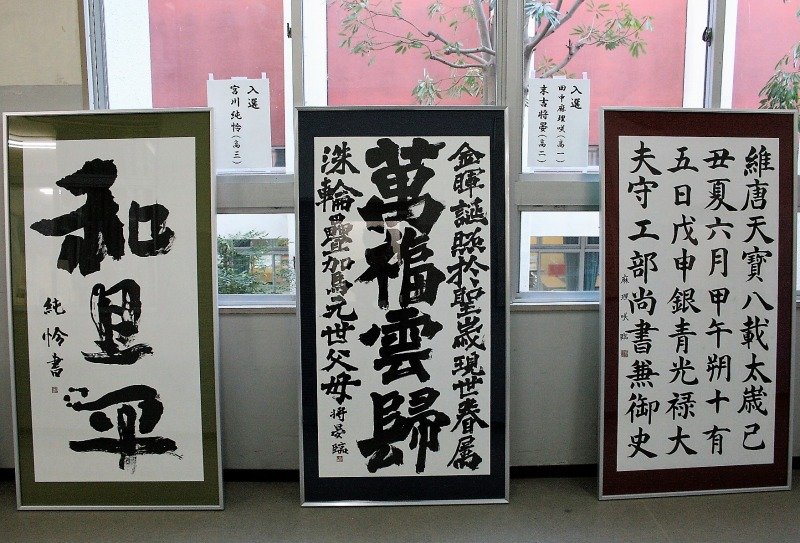 入選
宮川純怜(高三)
入選
田中麻理咲(高一)
末吉将晏(高二)
和里平
純怜書
金暉誕照於聖歳現世眷属
萬福雲歸
洙輪疊駕元世父母
将晏臨
維唐天寶八載太歳己
丑夏六月甲午朔十有
五日戊申銀青光禄大
夫守工部尚書兼御史
麻理咲臨